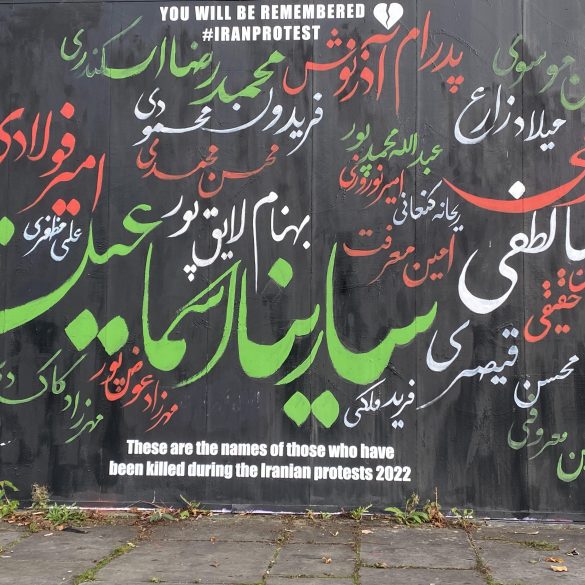 YOU WILL BE REMEMBERED
#IRANPROTEST
پدرام آذرنوش
محمدرضا اسکندری
موسوی
میلاد زارع
فریدون محمودی
عبدالله محمدپور
امیر فولادی
محسن محمدی
امیر نوروزی
ریحانه کنعانی
بهنام لایق‌پور
علی مظفری
امین معرفت
لطفی
حقیقی
سارینا اسماعیل
محسن قیصری
مهرزاد عوض‌پور
فرید فلکی
مهرزاد کاک
معروفی
These are the names of those who have
been killed during the Iranian protests 2022